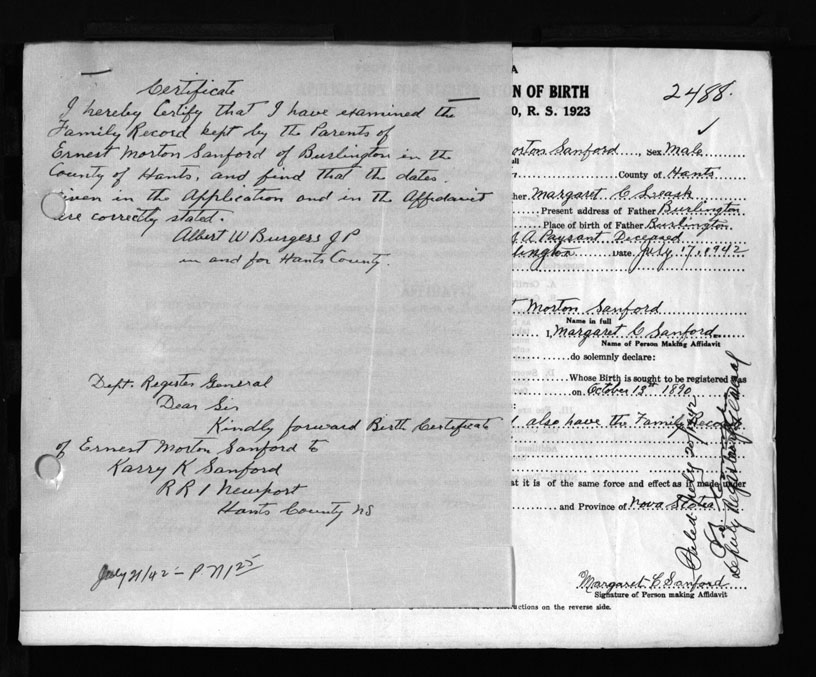 Certificate
I hereby Certify that I have examined the
Family Record kept by the Parents of
Ernest Morton Sanford of Burlington in the
County of Hants, and find that the dates
given in the Application and in the Affidavit
are correctly stated.
Albert W Burgess J P
in and for Hants County.
Dept. Register General
Dear Sir
Kindly forward Birth Certificate
of Ernest Morton Sanford to
Karry K Sanford
R R 1 Newport
Hants County NS
July 21/42 -
A
N OF BIRTH
0, R. S. 1923
2488.
orton Sanford, Sex Male
County of Hants
her Margaret C
Present address of Father Burlington
Place of birth of Father Burlington
A Paysant Deceased
lington Date July 17, 1942
t Morton Sanford
Name in full
I, Margaret C Sanford
Name of Person Making Affidavit
do solemnly declare:
Whose Birth is sought to be registered was
on October 13st 1890
I also have the Family Record
at it is of the same force and effect as if made under
and Province of Nova Scotia
Margaret C Sanford
Signature of Person making Affidavit
ructions on the reverse side.
July 20/1942
Deputy Registrar General